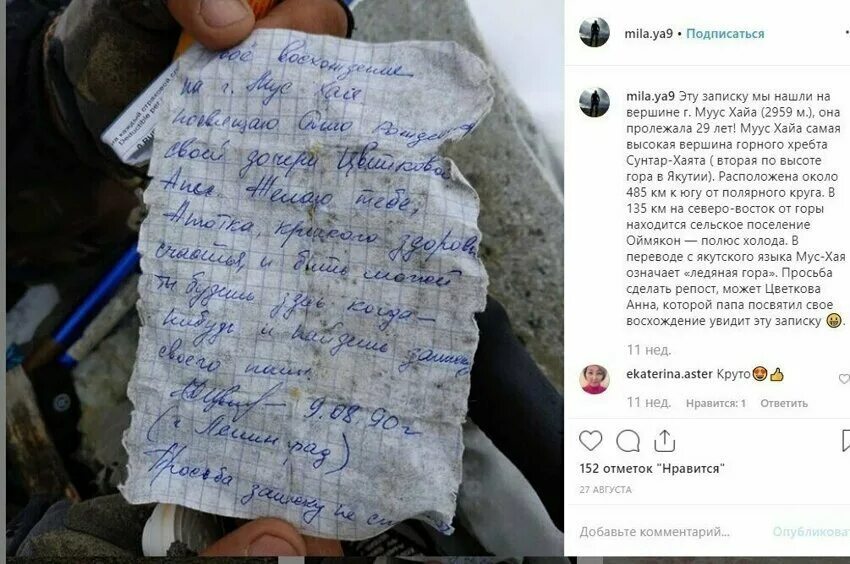 моё восхождение
на г. Мус Хая
посвящаю Дню рождения
своей дочери Цветковой
Анне. Желаю тебе,
Анютка, крепкого здоровья
счастья, и быть может
ты будешь здесь когда-
нибудь и найдешь записку
своего папы.
9.08.90г
(г. Ленинград)
Просьба записку не
на каждый страховой
Deductible per
mila.ya9 • Подписаться
mila.ya9 Эту записку мы нашли на
вершине г. Муус Хайа (2959 м.), она
пролежала 29 лет! Муус Хайа самая
высокая вершина горного хребта
Сунтар-Хаята ( вторая по высоте
гора в Якутии). Расположена около
485 км к югу от полярного круга. В
135 км на северо-восток от горы
находится сельское поселение
Оймякон — полюс холода. В
переводе с якутского языка Мус-Хая
означает «ледяная гора». Просьба
сделать репост, может Цветкова
Анна, которой папа посвятил свое
восхождение увидит эту записку 😀.
11 нед.
ekaterina.aster Круто😍👍
11 нед. Нравится: 1 Ответить
152 отметок "Нравится"
27 АВГУСТА
Добавьте комментарий...
Опубликова